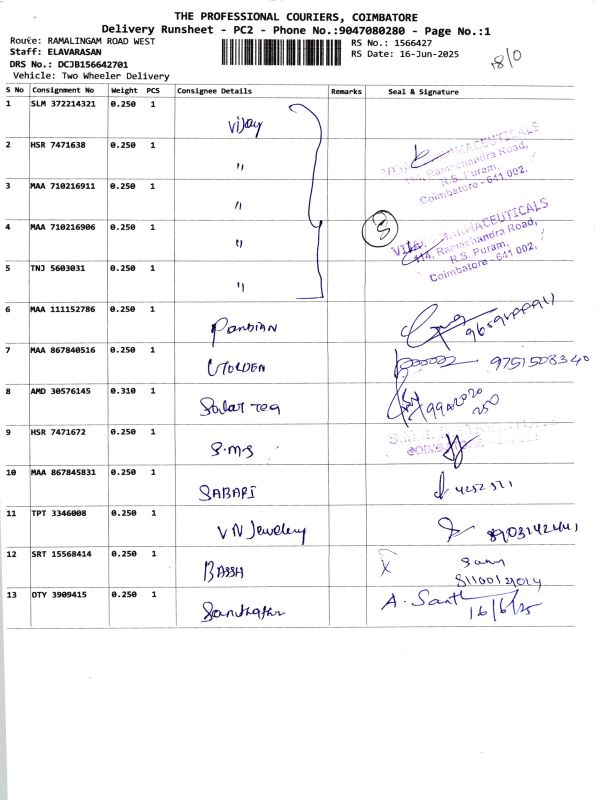 THE PROFESSIONAL COURIERS, COIMBATORE
Delivery Runsheet - PC2 - Phone No.:9047080280 - Page No.:1
Route: RAMALINGAM ROAD WEST
Staff: ELAVARASAN
DRS No.: DCJB156642701
Vehicle: Two Wheeler Delivery
RS No.: 1566427
RS Date: 16-Jun-2025
S No Consignment No Weight PCS Consignee Details Remarks Seal & Signature
1 SLM 372214321 0.250 1 Vijay
2 HSR 7471638 0.250 1 "
3 MAA 710216911 0.250 1 "
4 MAA 710216906 0.250 1 "
5 TNJ 5603031 0.250 1 "
114, Ramachandra Road,
R.S. Puram,
Coimbatore - 641 002.
5
114, Ramachandra Road,
R.S. Puram,
Coimbatore - 641 002.
6 MAA 111152786 0.250 1 Pandian
7 MAA 867840516 0.250 1 9751508340
8 AMD 30576145 0.310 1 Solar
9 HSR 7471672 0.250 1 S.M.S
10 MAA 867845831 0.250 1 SABARI
11 TPT 3346008 0.250 1 VN Jewelery
12 SRT 15568414 0.250 1
13 OTY 3909415 0.250 1 A. Santh
16/6/25